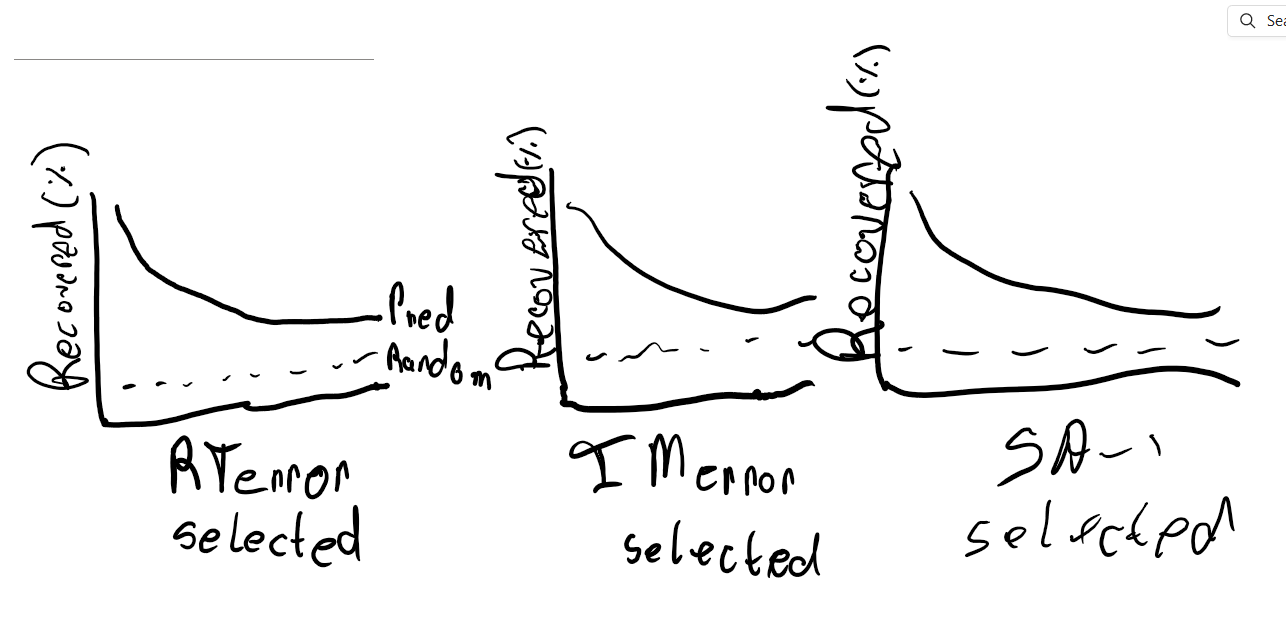 Sea
Recovered (%)
Pred
Random
RT error
selected
Recovered (%)
IM error
selected
Recovered (%)
SA-1
selected